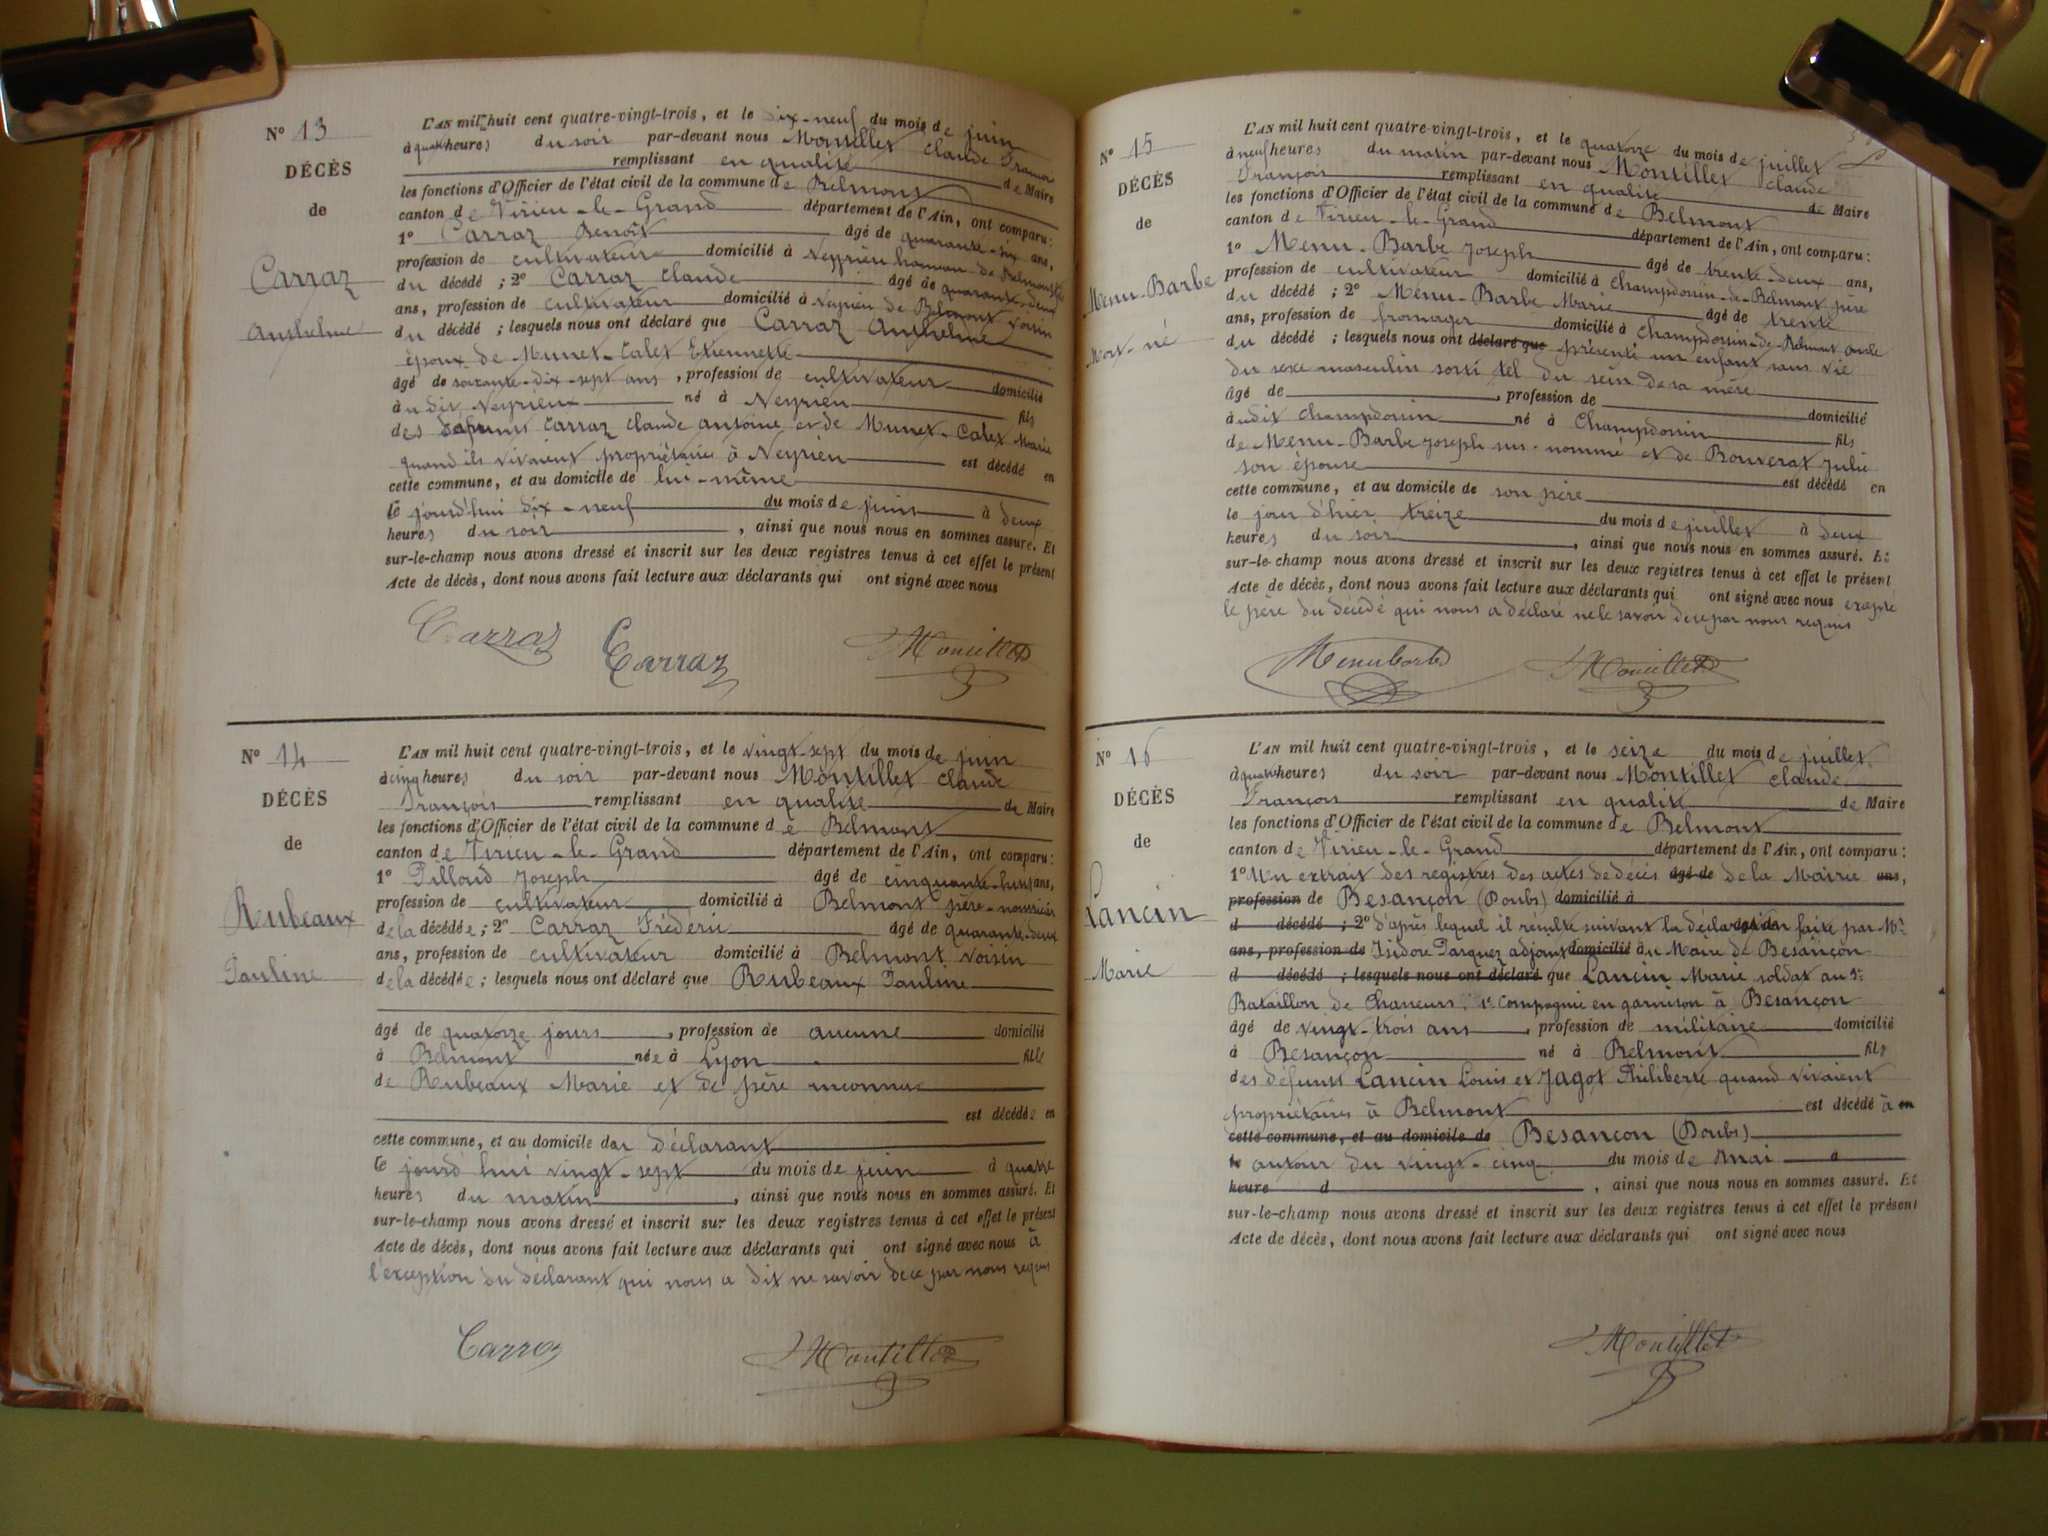 N° 13
DÉCÈS
de
Carraz
Anthelme
L'AN mil huit cent quatre-vingt-trois, et le dix-neuf du mois de juin
à quatre heures du soir par-devant nous Montillet Claude
remplissant en qualité de Maire
les fonctions d'Officier de l'état civil de la commune de Belmont
canton de Virieu-le-Grand département de l'Ain, ont comparu :
1° Carraz Benoît âgé de quarante-six ans,
profession de cultivateur domicilié à Neyrieu hameau de Belmont
du décédé ; 2° Carraz Claude âgé de quarante-deux
ans, profession de cultivateur domicilié à Neyrieu de Belmont voisin
du décédé ; lesquels nous ont déclaré que Carraz Anthelme
époux de Munet-Calet Etiennette
âgé de soixante-dix-sept ans, profession de cultivateur domicilié
à u dit Neyrieux né à Neyrieu fils
des défunts Carraz Claude Antoine et de Munet-Calet Marie
quand ils vivaient propriétaires à Neyrieu est décédé en
cette commune, et au domicile de lui-même
le jourd'hui dix-neuf du mois de juin à deux
heures du soir, ainsi que nous nous en sommes assuré. Et
sur-le-champ nous avons dressé et inscrit sur les deux registres tenus à cet effet le présent
Acte de décès, dont nous avons fait lecture aux déclarants qui ont signé avec nous
Carraz Carraz Montillet
N° 14
DÉCÈS
de
Rubeaux
Pauline
L'AN mil huit cent quatre-vingt-trois, et le vingt-sept du mois de juin
à cinq heures du soir par-devant nous Montillet Claude
François remplissant en qualité de Maire
les fonctions d'Officier de l'état civil de la commune de Belmont
canton de Virieu-le-Grand département de l'Ain, ont comparu :
1° Pilloud Joseph âgé de cinquante-huit ans,
profession de cultivateur domicilié à Belmont père-nourricier
de la décédée ; 2° Carraz Frédéric âgé de quarante-deux
ans, profession de cultivateur domicilié à Belmont voisin
de la décédée ; lesquels nous ont déclaré que Rubeaux Pauline
âgé de quatorze jours, profession de aucune domicilié
à Belmont née à Lyon fille
de Rubeaux Marie et de père inconnu
est décédée en
cette commune, et au domicile du déclarant
le jourd'hui vingt-sept du mois de juin à quatre
heures du matin, ainsi que nous nous en sommes assuré. Et
sur-le-champ nous avons dressé et inscrit sur les deux registres tenus à cet effet le présent
Acte de décès, dont nous avons fait lecture aux déclarants qui ont signé avec nous à
l'exception du déclarant qui nous a dit ne savoir de ce par nous requis
Carraz Montillet
N° 15
DÉCÈS
de
Menu-Barbe
Mort-né
L'AN mil huit cent quatre-vingt-trois, et le quatorze du mois de juillet
à neuf heures du matin par-devant nous Montillet Claude
François remplissant en qualité de Maire
les fonctions d'Officier de l'état civil de la commune de Belmont
canton de Virieu-le-Grand département de l'Ain, ont comparu :
1° Menu-Barbe Joseph âgé de trente-deux ans,
profession de cultivateur domicilié à Champdossin-de-Belmont père
du décédé ; 2° Menu-Barbe Marie âgé de trente
ans, profession de fromager domicilié à Champdossin-de-Belmont oncle
du décédé ; lesquels nous ont déclaré que présenté un enfant sans vie
du sexe masculin sorti tel du sein de sa mère
âgé de , profession de domicilié
à udit Champdossin né à Champdossin fils
de Menu-Barbe Joseph sus-nommé et de Bouverat Julie
son épouse est décédé en
cette commune, et au domicile de son père
le jour d'hier treize du mois de juillet à deux
heures du soir, ainsi que nous nous en sommes assuré. Et
sur-le-champ nous avons dressé et inscrit sur les deux registres tenus à cet effet le présent
Acte de décès, dont nous avons fait lecture aux déclarants qui ont signé avec nous excepté
le père du décédé qui nous a déclaré ne le savoir de ce par nous requis
Menu barbe Montillet
N° 16
DÉCÈS
de
Lancin
Marie
L'AN mil huit cent quatre-vingt-trois, et le seize du mois de juillet
à quatre heures du soir par-devant nous Montillet Claude
François remplissant en qualité de Maire
les fonctions d'Officier de l'état civil de la commune de Belmont
canton de Virieu-le-Grand département de l'Ain, ont comparu :
1° Un extrait des registres des actes de décès âgé de de la Mairie ans,
profession de Besançon (Doubs) domicilié à
d décédé ; 2° d'après lequel il résulte suivant la déclaration faite par Mr
ans, profession de Isidore Pasquez adjoint domicilié au Maire de Besançon
d décédé ; lesquels nous ont déclaré que Lancin Marie soldat au 5e
Bataillon de Chasseurs, 1e Compagnie en garnison à Besançon
âgé de vingt-trois ans, profession de militaire domicilié
à Besançon né à Belmont fils
des défunts Lancin Louis et Jagot Philiberte quand vivaient
propriétaires à Belmont est décédé à en
cette commune, et au domicile de Besançon (Doubs)
le autour du vingt-cinq du mois de Mai à
heure d , ainsi que nous nous en sommes assuré. Et
sur-le-champ nous avons dressé et inscrit sur les deux registres tenus à cet effet le présent
Acte de décès, dont nous avons fait lecture aux déclarants qui ont signé avec nous
Montillet